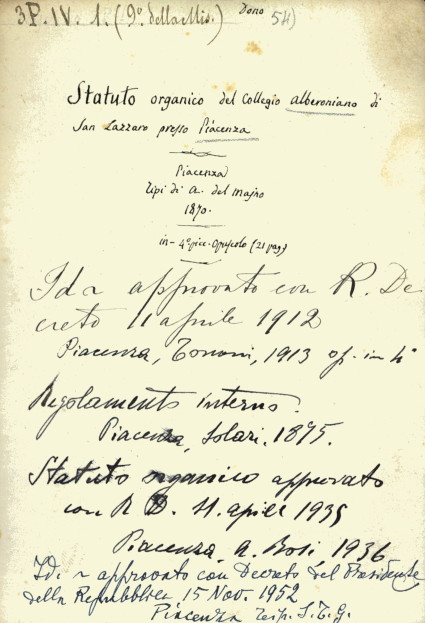 3P.IV. 1. (9º. della Mis.) Dono 54)
Statuto organico del Collegio alberoniano di
San Lazzaro presso Piacenza
Piacenza
Tipi di A. del Majno
1870.
in-4º picc. Opuscolo (21 pag)
Id approvato con R. De
creto 11 aprile 1912
Piacenza, Tononi, 1913 op. in 4º
Regolamento interno.
Piacenza, Solari. 1875.
Statuto organico approvato
con R D. 11. aprile 1935
Piacenza, A. Bosi 1936
Id. approvato con Decreto del Presidente
della Repubblica 15 Nov. 1952
Piacenza Tip. S.T.G.